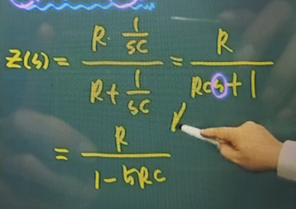 Z(s) = (R · 1/SC) / (R + 1/SC) = R / (RCS + 1)
= R / (1 - 5RC)